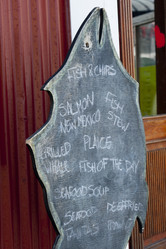 FISH & CHIPS
SALMON FISH
NEW MEXICO STEW
GRILLED PLAICE
FISH OF THE DAY
SEAFOOD SOUP
SEAFOOD DEEPFRIED